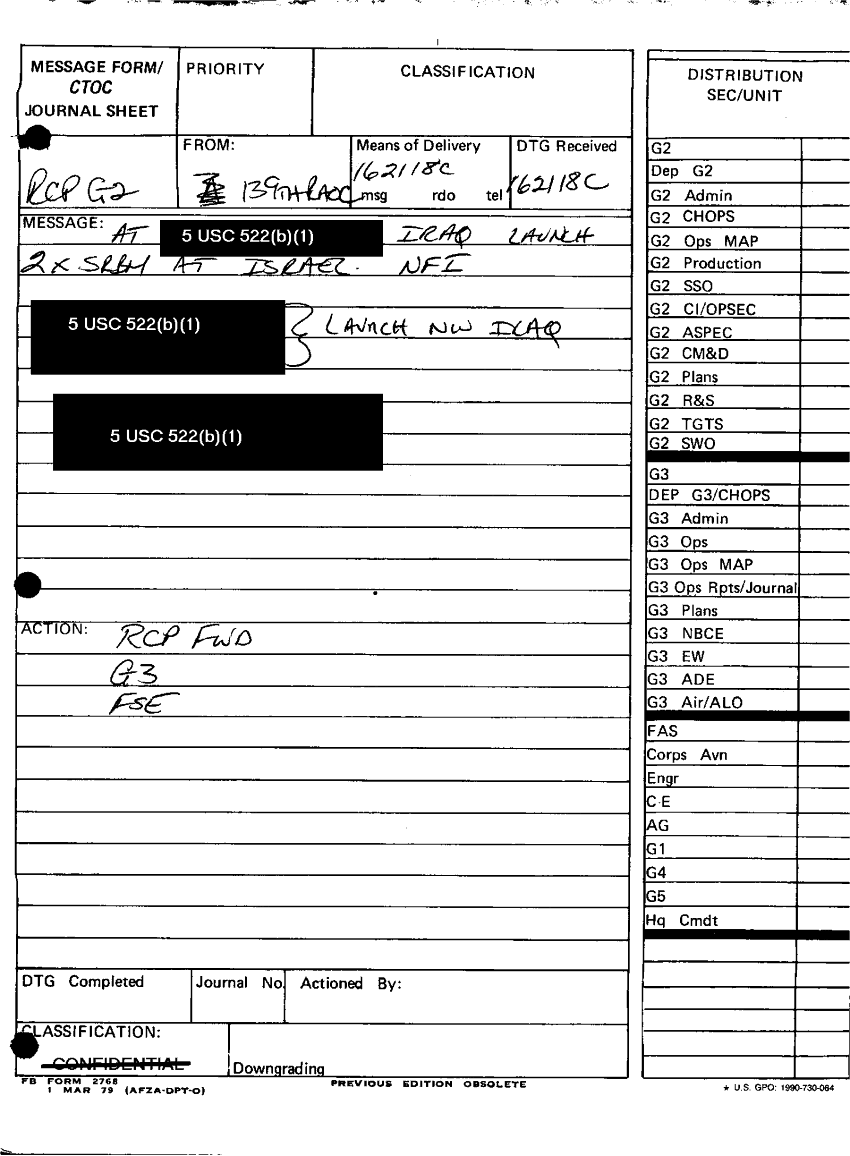 MESSAGE FORM/
CTOC
JOURNAL SHEET
PRIORITY
CLASSIFICATION
RCP G2
FROM:
139TH RAOC
Means of Delivery
162118C
msg rdo tel
DTG Received
162118C
MESSAGE: AT 5 USC 522(b)(1) IRAQ LAUNCH
2 x SRBM AT ISRAEL. NFI
5 USC 522(b)(1) LAUNCH NW IRAQ
5 USC 522(b)(1)
ACTION: RCP FWD
G3
FSE
DTG Completed
Journal No.
Actioned By:
CLASSIFICATION:
CONFIDENTIAL
Downgrading
FB FORM 2768
1 MAR 79 (AFZA-DPT-O)
PREVIOUS EDITION OBSOLETE
DISTRIBUTION
SEC/UNIT
G2
Dep G2
G2 Admin
G2 CHOPS
G2 Ops MAP
G2 Production
G2 SSO
G2 CI/OPSEC
G2 ASPEC
G2 CM&D
G2 Plans
G2 R&S
G2 TGTS
G2 SWO
G3
DEP G3/CHOPS
G3 Admin
G3 Ops
G3 Ops MAP
G3 Ops Rpts/Journal
G3 Plans
G3 NBCE
G3 EW
G3 ADE
G3 Air/ALO
FAS
Corps Avn
Engr
C-E
AG
G1
G4
G5
Hq Cmdt
★ U.S. GPO: 1990-730-064